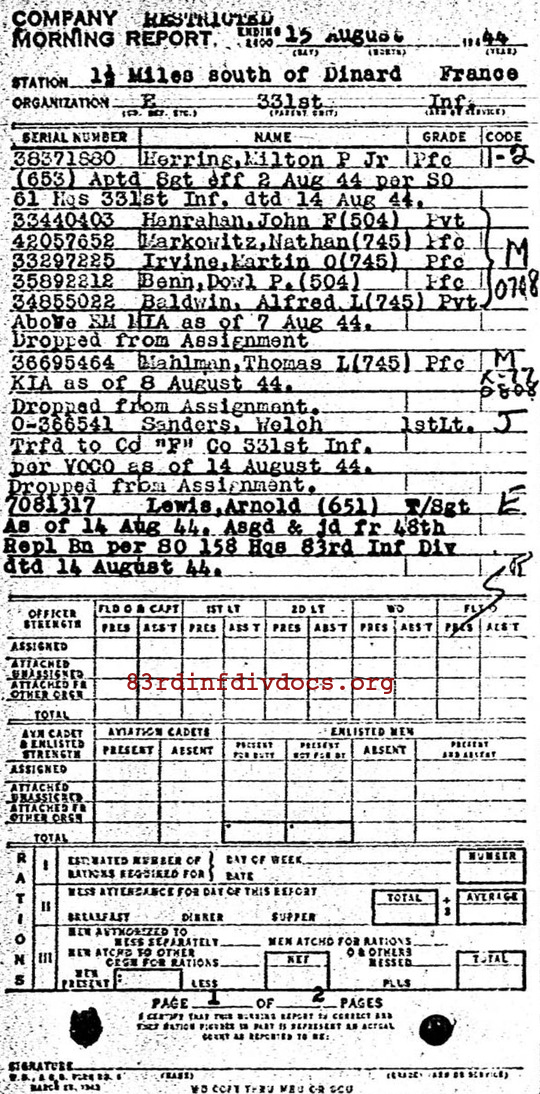 COMPANY RESTRICTED
MORNING REPORT. ENDING 2400 15 August 1944
(DAY) (MONTH) (YEAR)
STATION 1½ Miles south of Dinard France
ORGANIZATION E 331st Inf.
(CO. DET. ETC.) (PARENT UNIT) (ARM OR SERVICE)
SERIAL NUMBER NAME GRADE CODE
38371880 Herring,Milton P Jr Pfc 1-2
(653) Aptd Sgt eff 2 Aug 44 per SO
61 Hqs 331st Inf. dtd 14 Aug 44.
33440403 Hanrahan,John F(504) Pvt
42057652 Markowitz,Nathan(745) Pfc
33297225 Irvine,Martin O(745) Pfc M
35892212 Benn,Dowl P.(504) Pfc 0708
34855022 Baldwin, Alfred L(745) Pvt
Above EM MIA as of 7 Aug 44.
Dropped from Assignment
36695464 Mahlman,Thomas L(745) Pfc M
KIA as of 8 August 44. 0808
Dropped from Assignment.
O-366541 Sanders, Welch 1stLt. J
Trfd to Co "F" Co 331st Inf.
per VOCO as of 14 August 44.
Dropped from Assignment.
7081317 Lewis,Arnold (651) T/Sgt E
As of 14 Aug 44. Asgd & jd fr 48th
Repl Bn per SO 158 Hqs 83rd Inf Div
dtd 14 August 44.
OFFICER STRENGTH FLD O & CAPT 1ST LT 2D LT WO FLT O
PRES ABS'T PRES ABS'T PRES ABS'T PRES ABS'T PRES ABS'T
ASSIGNED
ATTACHED UNASSIGNED
ATTACHED FR OTHER ORGN
83rdinfdivdocs.org
TOTAL
AVN CADET & ENLISTED STRENGTH AVIATION CADETS ENLISTED MEN
PRESENT ABSENT PRESENT FOR DUTY PRESENT NOT FOR DY ABSENT PRESENT AND ABSENT
ASSIGNED
ATTACHED UNASSIGNED
ATTACHED FR OTHER ORGN
TOTAL
RATIONS
I ESTIMATED NUMBER OF RATIONS REQUIRED FOR DAY OF WEEK DATE NUMBER
II MESS ATTENDANCE FOR DAY OF THIS REPORT TOTAL ÷ 3 AVERAGE
BREAKFAST DINNER SUPPER
III MEN AUTHORIZED TO MESS SEPARATELY MEN ATCHD FOR RATIONS
MEN ATCHD TO OTHER ORGN FOR RATIONS NET O & OTHERS MESSED TOTAL
MEN PRESENT LESS PLUS
PAGE 1 OF 2 PAGES
I CERTIFY THAT THIS MORNING REPORT IS CORRECT AND
THAT RATION FIGURES IN PART III REPRESENT AN ACTUAL
COUNT AS REPORTED TO ME:
SIGNATURE
W.D., A.G.O. FORM NO. 1 (NAME) (GRADE) (ARM OR SERVICE)
MARCH 12, 1943